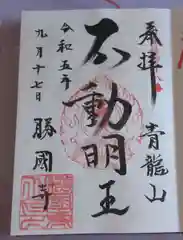 奉拝
青龍山
不動明王
令和五年
九月十七日
勝國寺